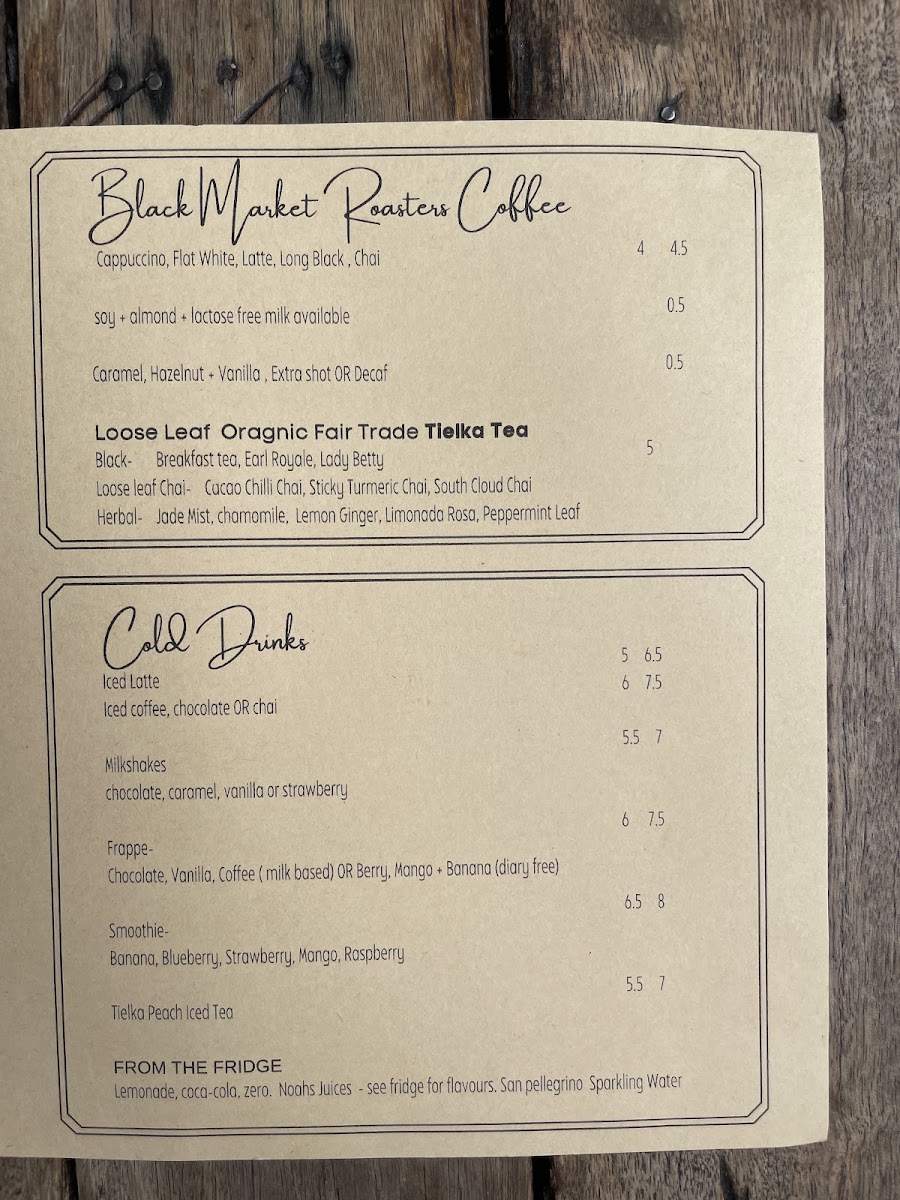 Black Market Roasters Coffee
Cappuccino, Flat White, Latte, Long Black , Chai 4 4.5
soy + almond + lactose free milk available 0.5
Caramel, Hazelnut + Vanilla , Extra shot OR Decaf 0.5
Loose Leaf Oragnic Fair Trade Tielka Tea
Black- Breakfast tea, Earl Royale, Lady Betty 5
Loose leaf Chai- Cacao Chilli Chai, Sticky Turmeric Chai, South Cloud Chai
Herbal- Jade Mist, chamomile, Lemon Ginger, Limonada Rosa, Peppermint Leaf
Cold Drinks
5 6.5
Iced Latte 6 7.5
Iced coffee, chocolate OR chai
5.5 7
Milkshakes
chocolate, caramel, vanilla or strawberry
6 7.5
Frappe-
Chocolate, Vanilla, Coffee ( milk based) OR Berry, Mango + Banana (diary free)
6.5 8
Smoothie-
Banana, Blueberry, Strawberry, Mango, Raspberry
5.5 7
Tielka Peach Iced Tea
FROM THE FRIDGE
Lemonade, coca-cola, zero. Noahs Juices - see fridge for flavours. San pellegrino Sparkling Water